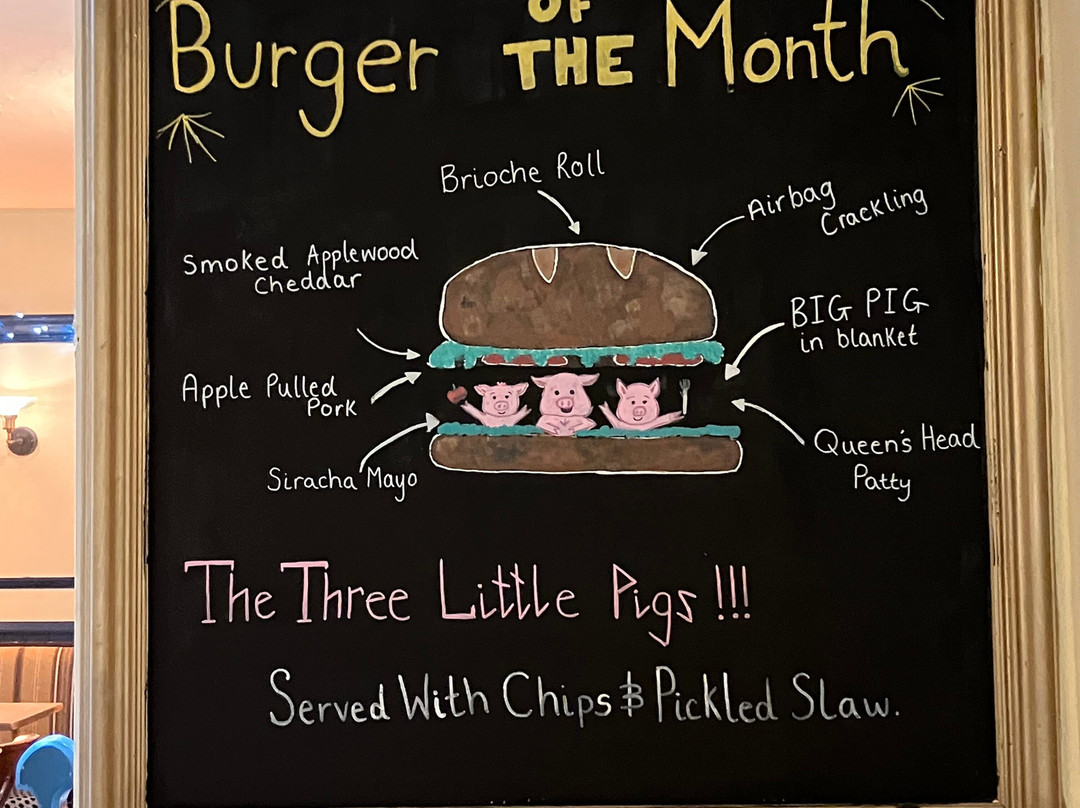 Burger OF THE Month
Brioche Roll
Airbag
Crackling
Smoked Applewood
Cheddar
BIG PIG
in blanket
Apple Pulled
Pork
Queen's Head
Patty
Siracha Mayo
The Three Little Pigs !!!
Served With Chips & Pickled Slaw.